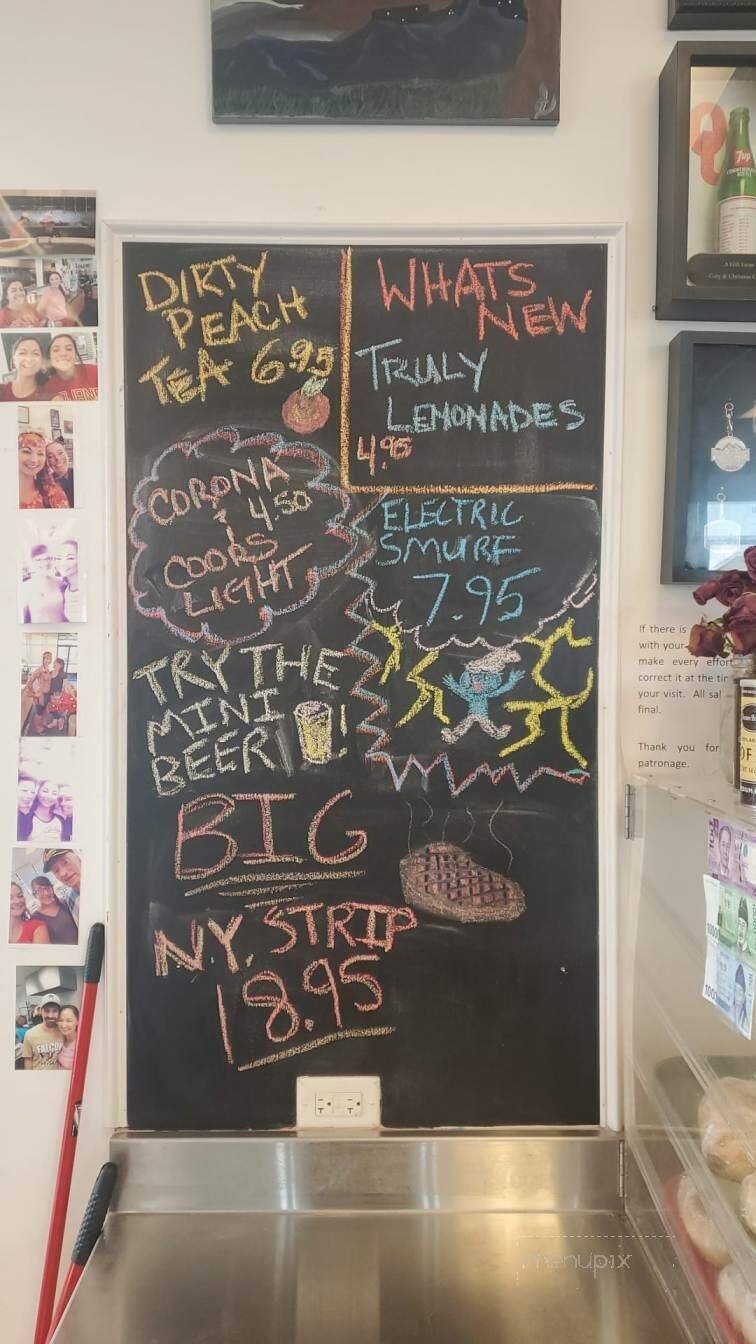 DIRTY
PEACH
TEA 6.95
WHATS
NEW
TRULY
LEMONADES
4.95
CORONA
& 4.50
COORS
LIGHT
ELECTRIC
SMURF
7.95
TRY THE
MINI
BEER!
BIG
N.Y. STRIP
18.95
7up
If there is
with your
make every effor
correct it at the tim
your visit. All sal
final.
Thank you for
patronage.
FALCON
menupix